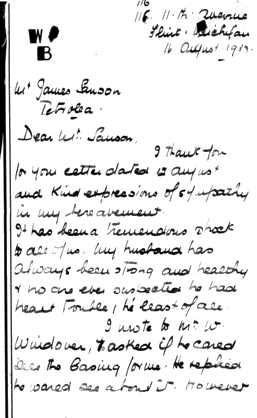 116
116. 11.th Avenue
Flint. Michigan
16. August. 19
W
B
Mr James Sanson
Petrolea.
Dear Mr. Sanson,
I thank you
for your letter dated 12 august
and kind expressions of sympathy
in my bereavement.
It has been a tremendous shock
to all of us. My husband has
always been strong and healthy
& no one ever suspected he had
heart trouble, he least of all.
I wrote to Mr. W.
Windover, & asked if he cared
see the Casing for me. He replied
he would see about it. However